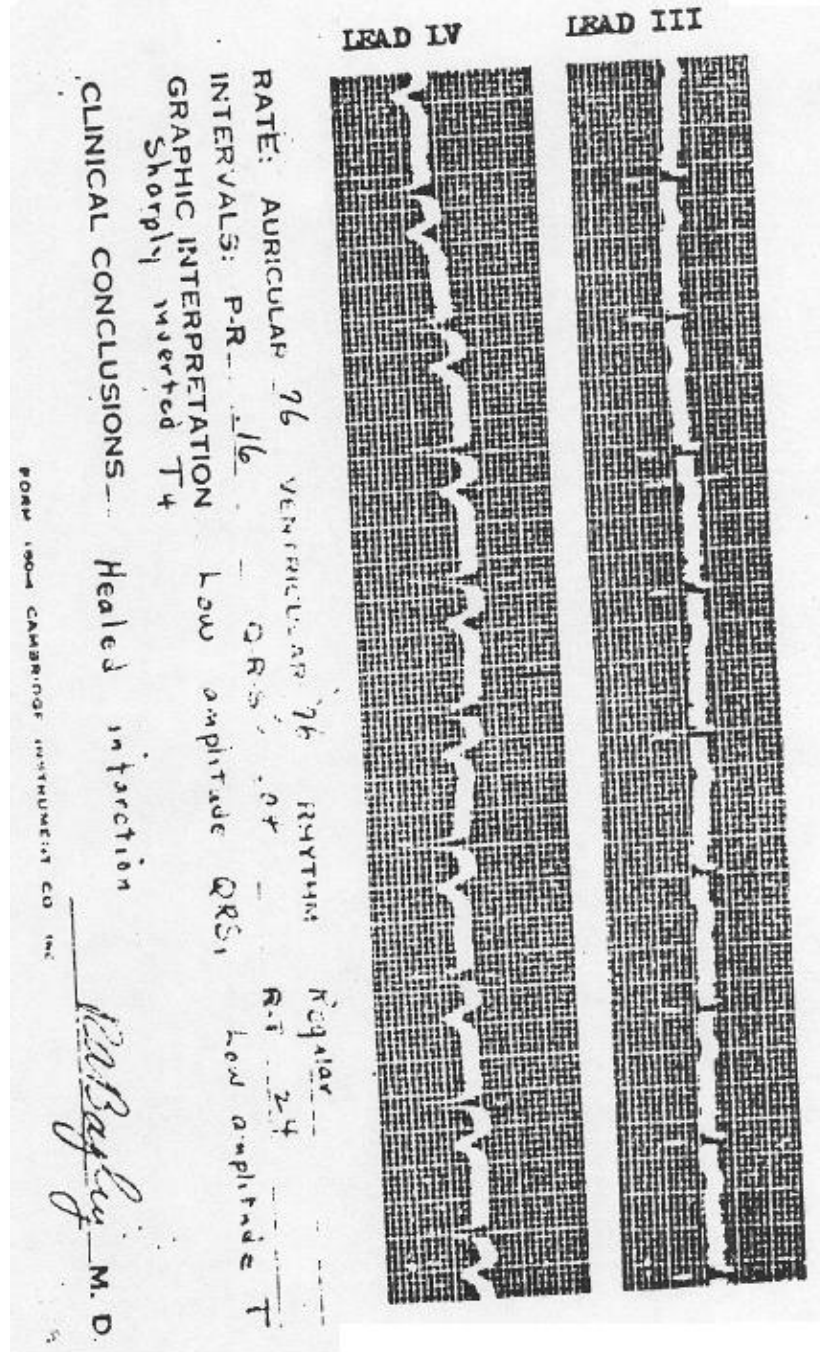 LEAD IV
LEAD III
RATE: AURICULAR 76 VENTRICULAR 76 RHYTHM Regular
INTERVALS: P-R .16 QRS R-T 24
GRAPHIC INTERPRETATION Low amplitude QRS, Low amplitude T
Sharply inverted T4
CLINICAL CONCLUSIONS Healed infarction
M. D.
FORM 190-4 CAMBRIDGE INSTRUMENT CO INC